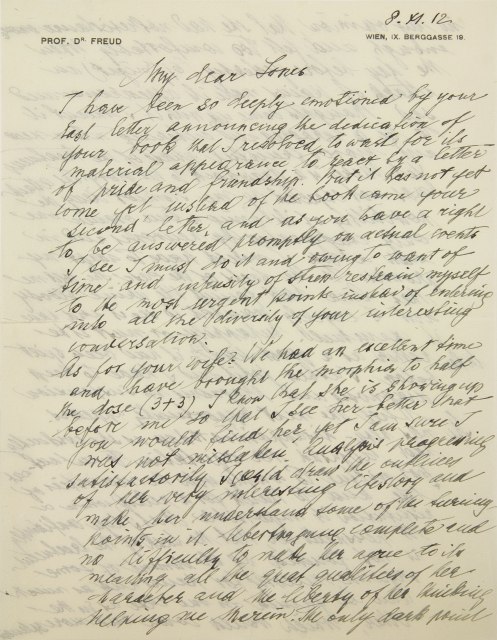 8. XI. 12
PROF. Dr. FREUD
WIEN, IX. BERGGASSE 19.
My dear Jones
I have been so deeply emotioned by your
last letter announcing the dedication of
your book that I resolved to wait for its
material appearance to react by a letter
of pride and friendship. But it has not yet
come yet, instead of the book came your
second letter, and as you have a right
to be answered promptly on actual events
I see I must do it and owing to want of
time and of restrain myself
to the most urgent points instead of entering
into all the diversity of your interesting
conversation.
As for your wife? We had an excellent time
and have brought the morphia to half
the dose (3+3) I know that she is showing up
before me so that I see her better that
you would find her, yet I am sure I
was not mistaken. Analysis progressing
satisfactorily I could draw the outlines
of her very interesting lifestory and
make her understand some of the turning
points in it. complete and
no difficulty to make her agree to its
meaning, all the great qualities of her
character and the liberty of her thinking
helping me therein. The only dark point